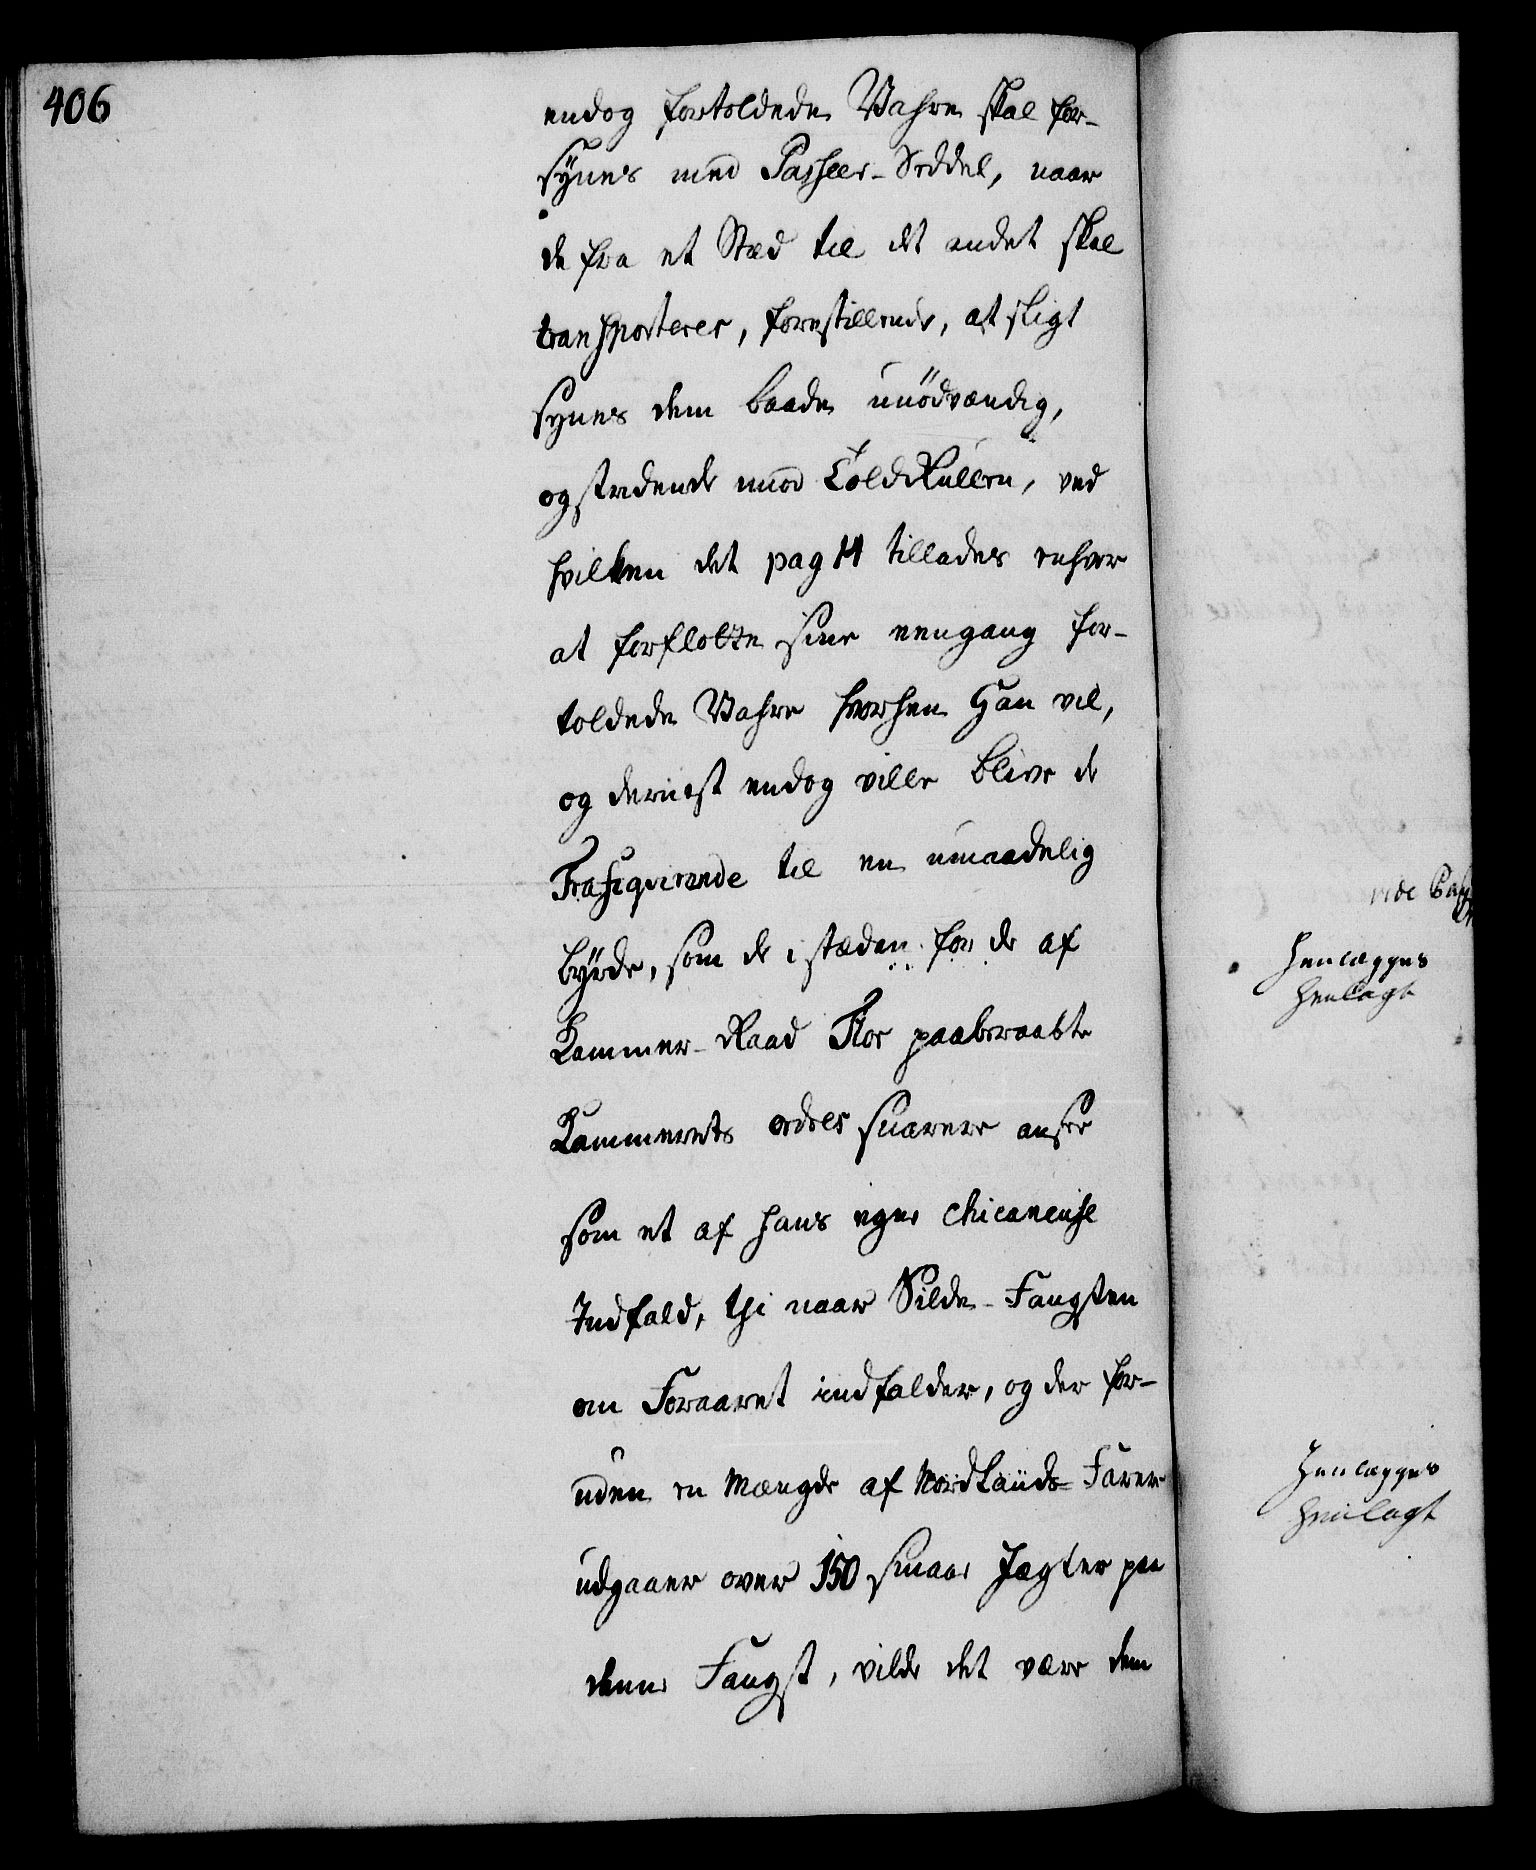 406
endog fortoldede Vahre skal for-
synes med Passeer-Seddel, naar
de fra et Stæd til et andet skal
transporteres, forestillende, at sligt
synes dem baade unödvændig,
og stridende mod ToldRullen, ved
hvilken det pag 14 tillades enhver
at forflötte sine eengang for-
toldede Vahre hvorhen Han vil,
og dernest endog ville blive de
Trafiqverende til en umaadelig
byrde, som de i stæden for de af
Kammer-Raad Flor paaberaabte
Kammerets ordres snarere ansee
som et af hans egne chicaneuse
Indfald, thi naar Silde-Fangsten
om Foraaret indfalder, og der for-
uden en Mængde af Nordlands-Farere
udgaaer over 150 smaae Jægter paa
denne Fangst, vilde det være dem
vide
Henlægges
henlagt
Henlægges
henlagt